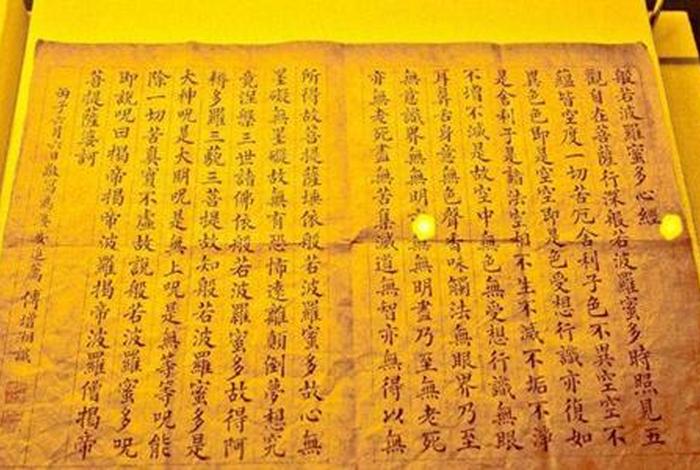 般若波羅蜜多心經
觀自在菩薩行深般若波羅蜜多時照見五
蘊皆空度一切苦厄舍利子色不異空空不
異色色即是空空即是色受想行識亦復如
是舍利子是諸法空相不生不滅不垢不淨
不增不減是故空中無色無受想行識無眼
耳鼻舌身意無色聲香味觸法無眼界乃至
無意識界無無明亦無無明盡乃至無老死
亦無老死盡無苦集滅道無智亦無得以無
所得故菩提薩埵依般若波羅蜜多故心無
罣礙無罣礙故無有恐怖遠離顛倒夢想究
竟涅槃三世諸佛依般若波羅蜜多故得阿
耨多羅三藐三菩提故知般若波羅蜜多是
大神呪是大明呪是無上呪是無等等呪能
除一切苦真實不虛故說般若波羅蜜多呪
即說呪曰揭帝揭帝波羅揭帝波羅僧揭帝
菩提薩婆訶
丙子六月六日敬寫為追薦 傅增湘識